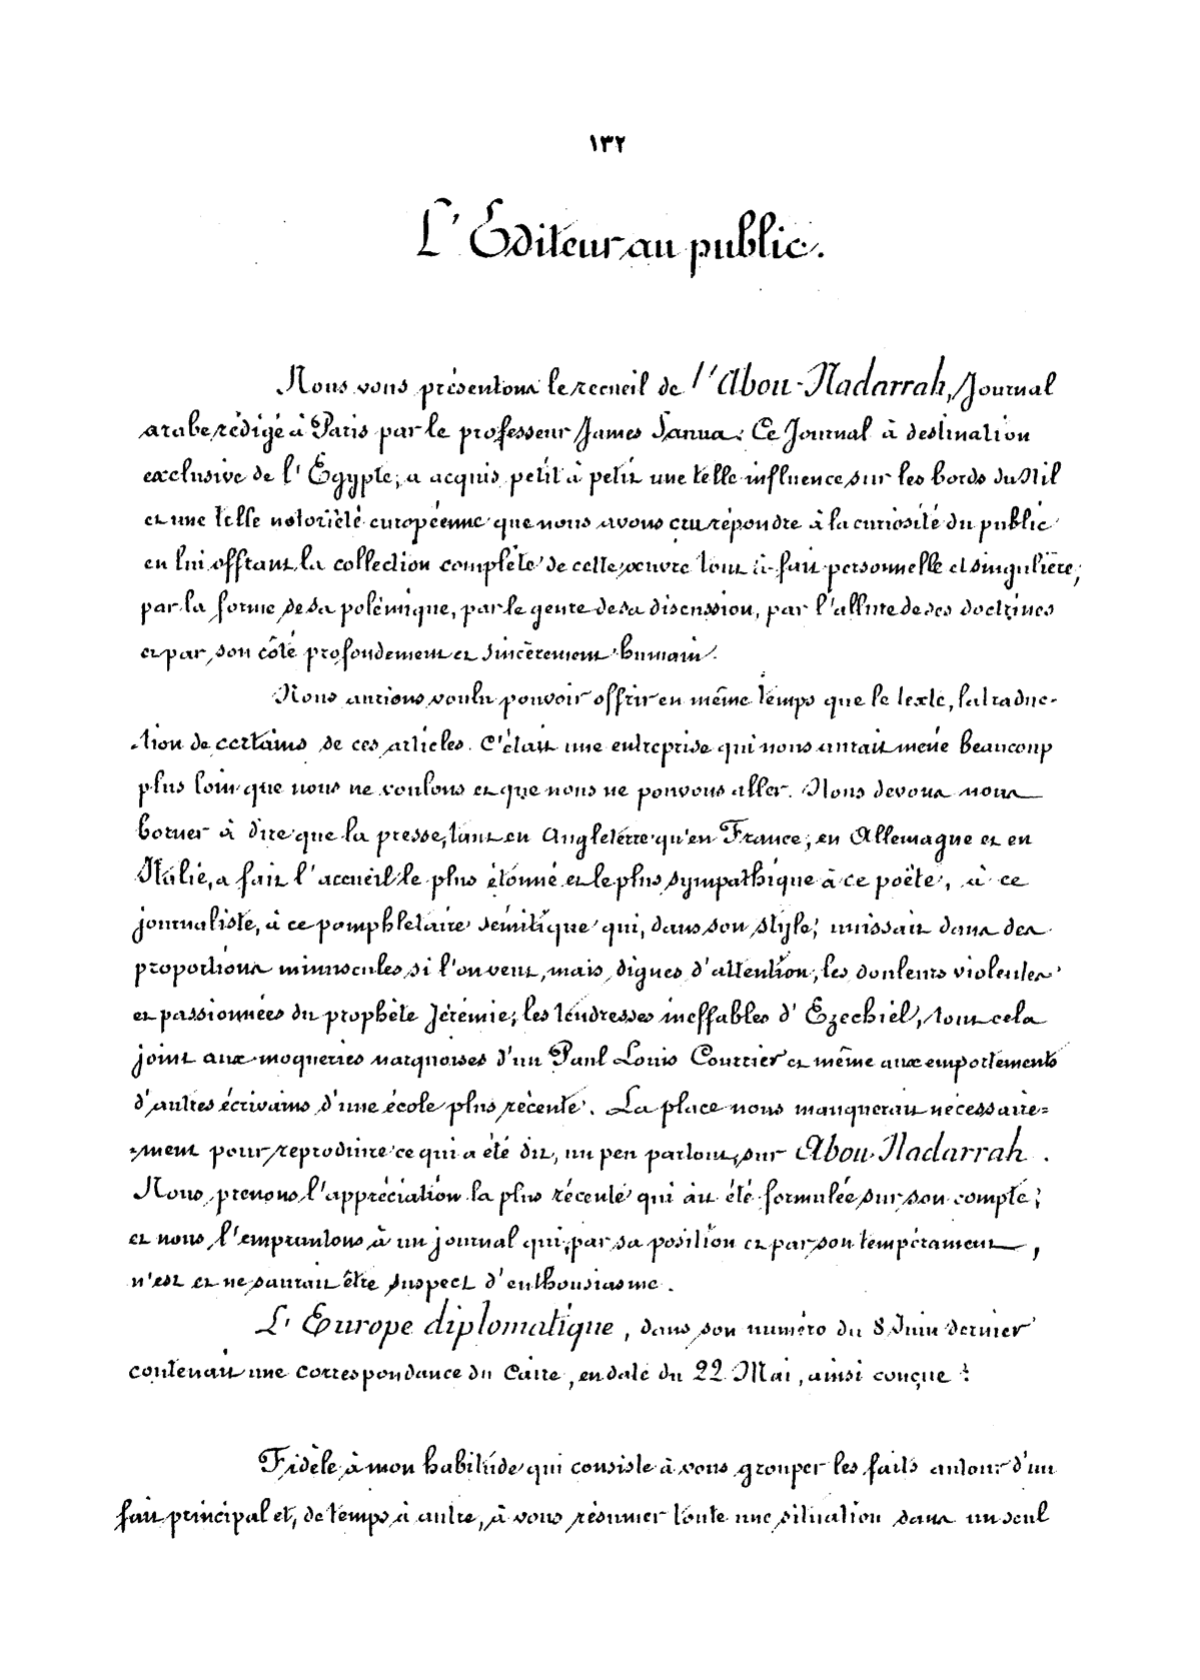 ١٣٢
L'Editeur au public.
Nous vous présentons le recueil de l'Abou-Nadarrah, Journal
arabe rédigé à Paris par le professeur James Sanua. Ce Journal à destination
exclusive de l'Égypte, a acquis petit à petit une telle influence sur les bords du Nil
et une telle notoriété européenne que nous avons cru répondre à la curiosité du public
en lui offrant la collection complète de cette œuvre tout à fait personnelle et singulière,
par la forme de sa polémique, par le genre de sa discussion, par l'allure de ses doctrines
et par son côté profondement et sincèrement humain.
Nous aurions voulu pouvoir offrir en même temps que le texte, la traduc-
-tion de certains de ces articles. C'était une entreprise qui nous aurait mené beaucoup
plus loin que nous ne voulons et que nous ne pouvons aller. Nous devons nous
borner à dire que la presse, tant en Angleterre qu'en France, en Allemagne et en
Italie, a fait l'accueil le plus étonné et le plus sympathique à ce poëte, à ce
journaliste, à ce pamphletaire sémitique qui, dans son style, unissait dans des
proportions minuscules si l'on veut, mais dignes d'attention, les douleurs violentes
et passionnées du prophète Jérémie, les tendresses ineffables d'Ezechiel, tout cela
joint aux moqueries narquoises d'un Paul Louis Courrier et même aux emportements
d'autres écrivains d'une école plus récente. La place nous manquerait nécessaire=
-ment pour reproduire ce qui a été dit, un peu partout, sur Abou-Nadarrah.
Nous prenons l'appréciation la plus récente qui ait été formulée sur son compte;
et nous l'empruntons à un journal qui, par sa position et par son tempérament,
n'est et ne saurait être suspect d'enthousiasme.
L'Europe diplomatique, dans son numéro du 8 Juin dernier
contenait une correspondance du Caire, en date du 22 Mai, ainsi conçue :
Fidèle à mon habitude qui consiste à vous grouper les faits autour d'un
fait principal et, de temps à autre, à vous résumer toute une situation dans un seul